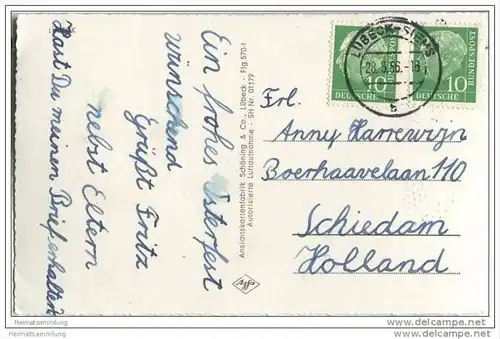 Ein frohes Osterfest
wünschend
Grüßt Fritz
nebst Eltern
Hast Du meinen Brief erhalten?
Ansichtskartenfabrik Schöning & Co., Lübeck - Flg 570-f
Autorisierte Luftaufnahme - SH Nr. 01179
Agfa
LÜBECK-SIEMS
DEUTSCHE BUNDESPOST
10
DEUTSCHE BUNDESPOST
10
Frl.
Anny Harrewijn
Boerhaavelaan 110
Schiedam
Holland
Heimatsammlung
Heimatsammlung.de